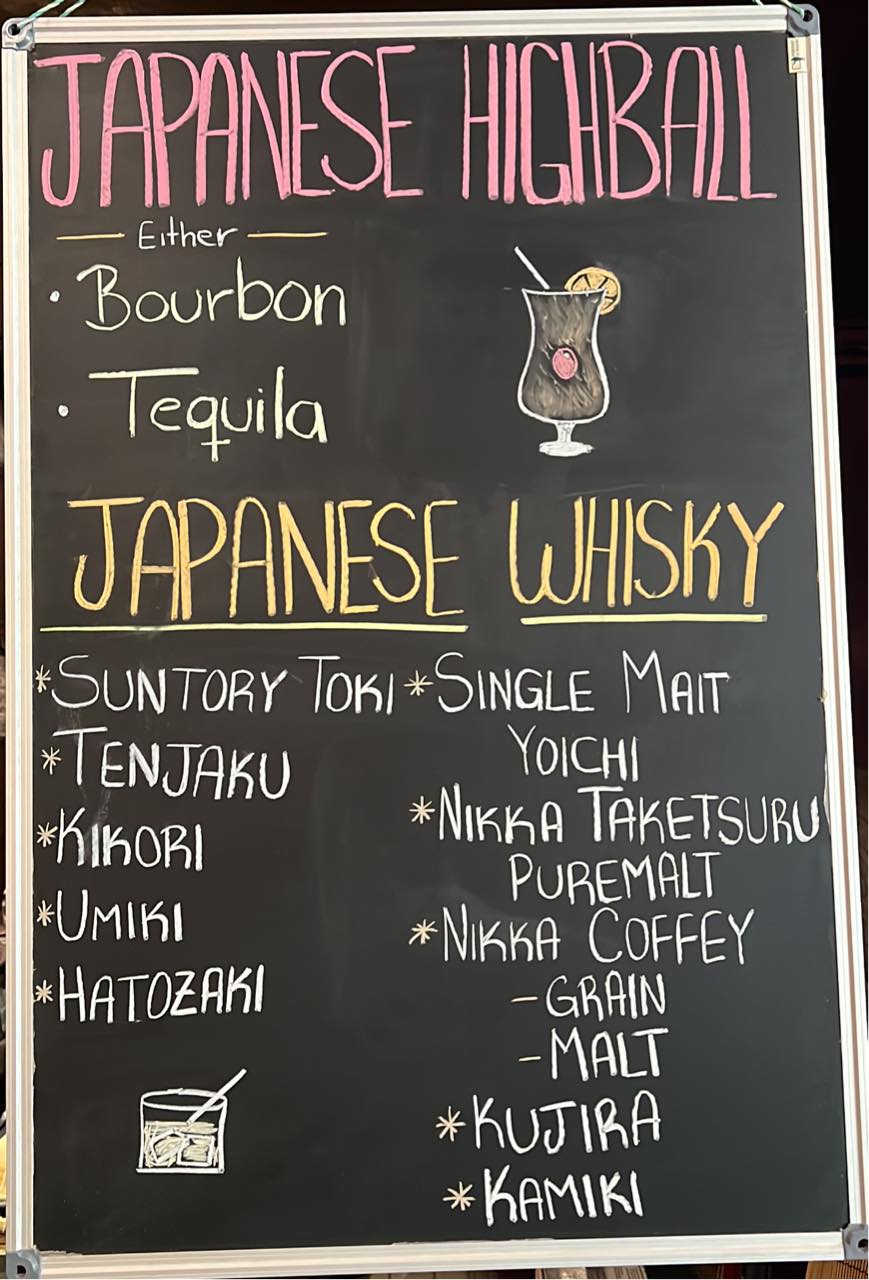 JAPANESE HIGHBALL
— Either —
• Bourbon
• Tequila
JAPANESE WHISKY
*SUNTORY TOKI
*TENJAKU
*KIKORI
*UMIKI
*HATOZAKI
*SINGLE MAIT
YOICHI
*NIKKA TAKETSURU
PUREMALT
*NIKKA COFFEY
-GRAIN
-MALT
*KUJIRA
*KAMIKI